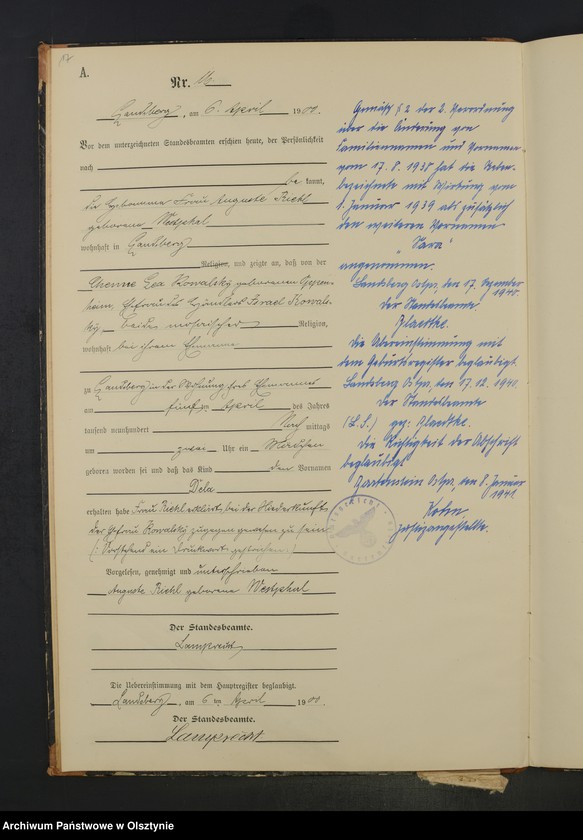 A.
Nr.
Landsberg, am 6. April 1900.
Vor dem unterzeichneten Standesbeamten erschien heute, der Persönlichkeit
nach
be kannt,
die Hebamme Frau Auguste Riehl
geborene Westphal
wohnhaft in Landsberg
Religion, und zeigte an, daß von der
Chenne Lea Kowalsky geborenen
heim, Ehefrau des Händlers Israel Kowals-
ky beide mosaischer Religion,
wohnhaft bei ihrem Ehemanne
zu Landsberg in der Wohnung ihres Ehemannes
am fünften April des Jahres
tausend neunhundert Nach mittags
um zwei Uhr ein Mädchen
geboren worden sei und daß das Kind den Vornamen
Dela
erhalten habe Frau Riehl erklärt, bei der Niederkunft
der Ehefrau Kowalsky zugegen gewesen zu sein
(Vorstehend ein Druckwort gestrichen.)
Vorgelesen, genehmigt und unterschrieben
Auguste Riehl geborene Westphal
Der Standesbeamte.
Lamprecht
Die Uebereinstimmung mit dem Hauptregister beglaubigt.
Landsberg, am 6 ten April 1900.
Der Standesbeamte.
Lamprecht
Gemäß § 2 der 2. Verordnung
über die Änderung von
Familiennamen und Vornamen
vom 17.8.1938 hat die Neben-
bezeichnete mit Wirkung vom
1. Januar 1939 als zusätzlich
den weiteren Vornamen
"Sara"
angenommen.
Landsberg Ostpr., den 17. Dezember
1940.
Der Standesbeamte
Die Übereinstimmung mit
dem Geburtsregister beglaubigt.
Landsberg Ostpr., den 17.12.1940.
Der Standesbeamte
(L.S.) gez.
Die Richtigkeit der Abschrift
beglaubigt
Bartenstein Ostpr., den 8. Januar
1941
Justizangestellte.
Archiwum Państwowe w Olsztynie